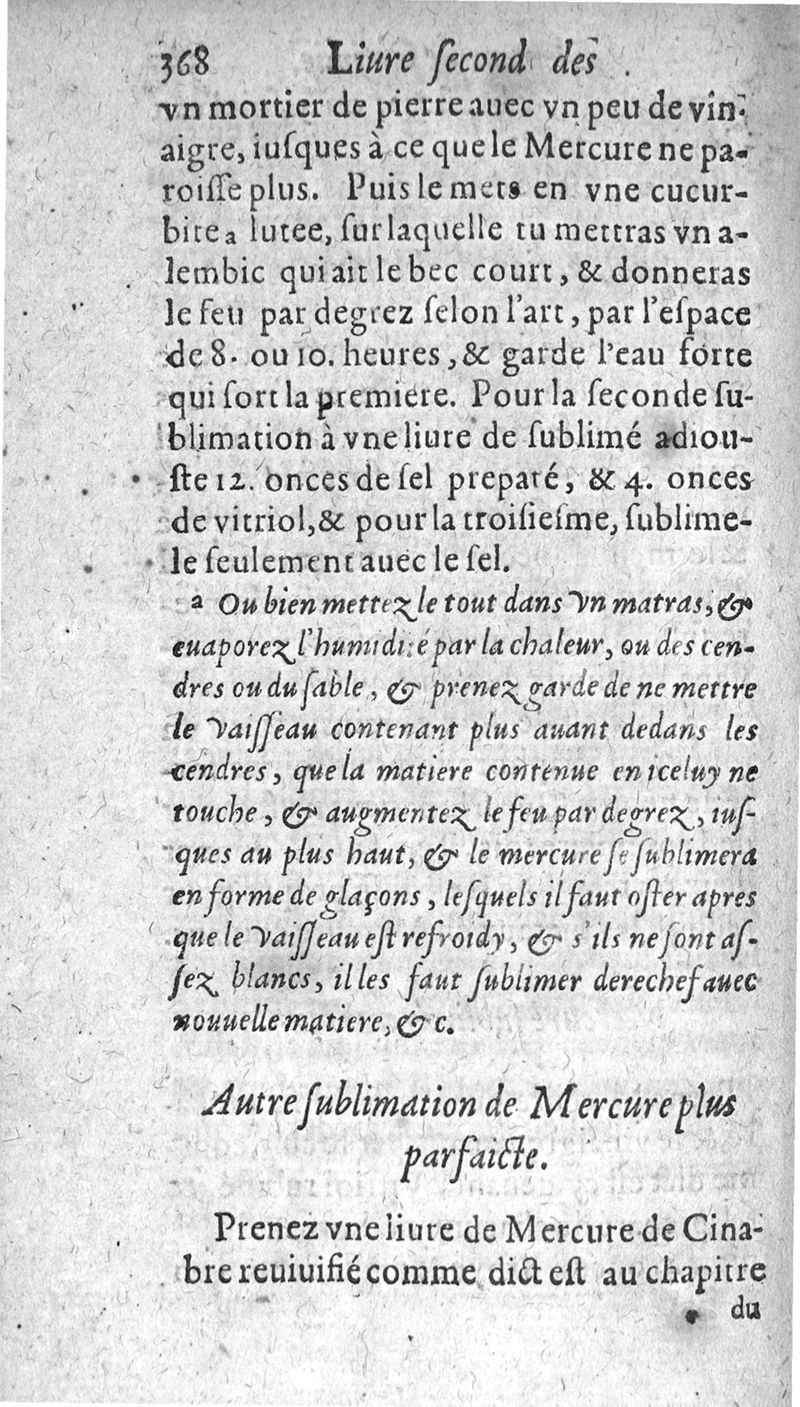 368 Liure ſecond des
vn mortier de pierre auec vn peu de vin-
aigre, iuſques à ce que le Mercure ne pa-
roiſſe plus. Puis le mets en vne cucur-
bite a lutee, ſur laquelle tu mettras vn a-
lembic qui ait le bec court, & donneras
le feu par degrez ſelon l'art, par l'eſpace
de 8. ou 10. heures, & garde l'eau forte
qui ſort la premiere. Pour la ſeconde ſu-
blimation à vne liure de ſublimé adiou-
ſte 12. onces de ſel preparé, & 4. onces
de vitriol, & pour la troiſieſme, ſublime-
le ſeulement auec le ſel.
a Ou bien mettez le tout dans vn matras, &
euaporez l'humidité par la chaleur, ou des cen-
dres ou du ſable, & prenez garde de ne mettre
le vaiſſeau contenant plus auant dedans les
cendres, que la matiere contenue en iceluy ne
touche, & augmentez le feu par degrez, iuſ-
ques au plus haut, & le mercure ſe ſublimera
en forme de glaçons, leſquels il faut oſter apres
que le vaiſſeau eſt refroidy, & s'ils ne ſont aſ-
ſez blancs, il les faut ſublimer derechef auec
nouuelle matiere, &c.
Autre ſublimation de Mercure plus
parfaicte.
Prenez vne liure de Mercure de Cina-
bre reuiuifié comme dict eſt au chapitre
du